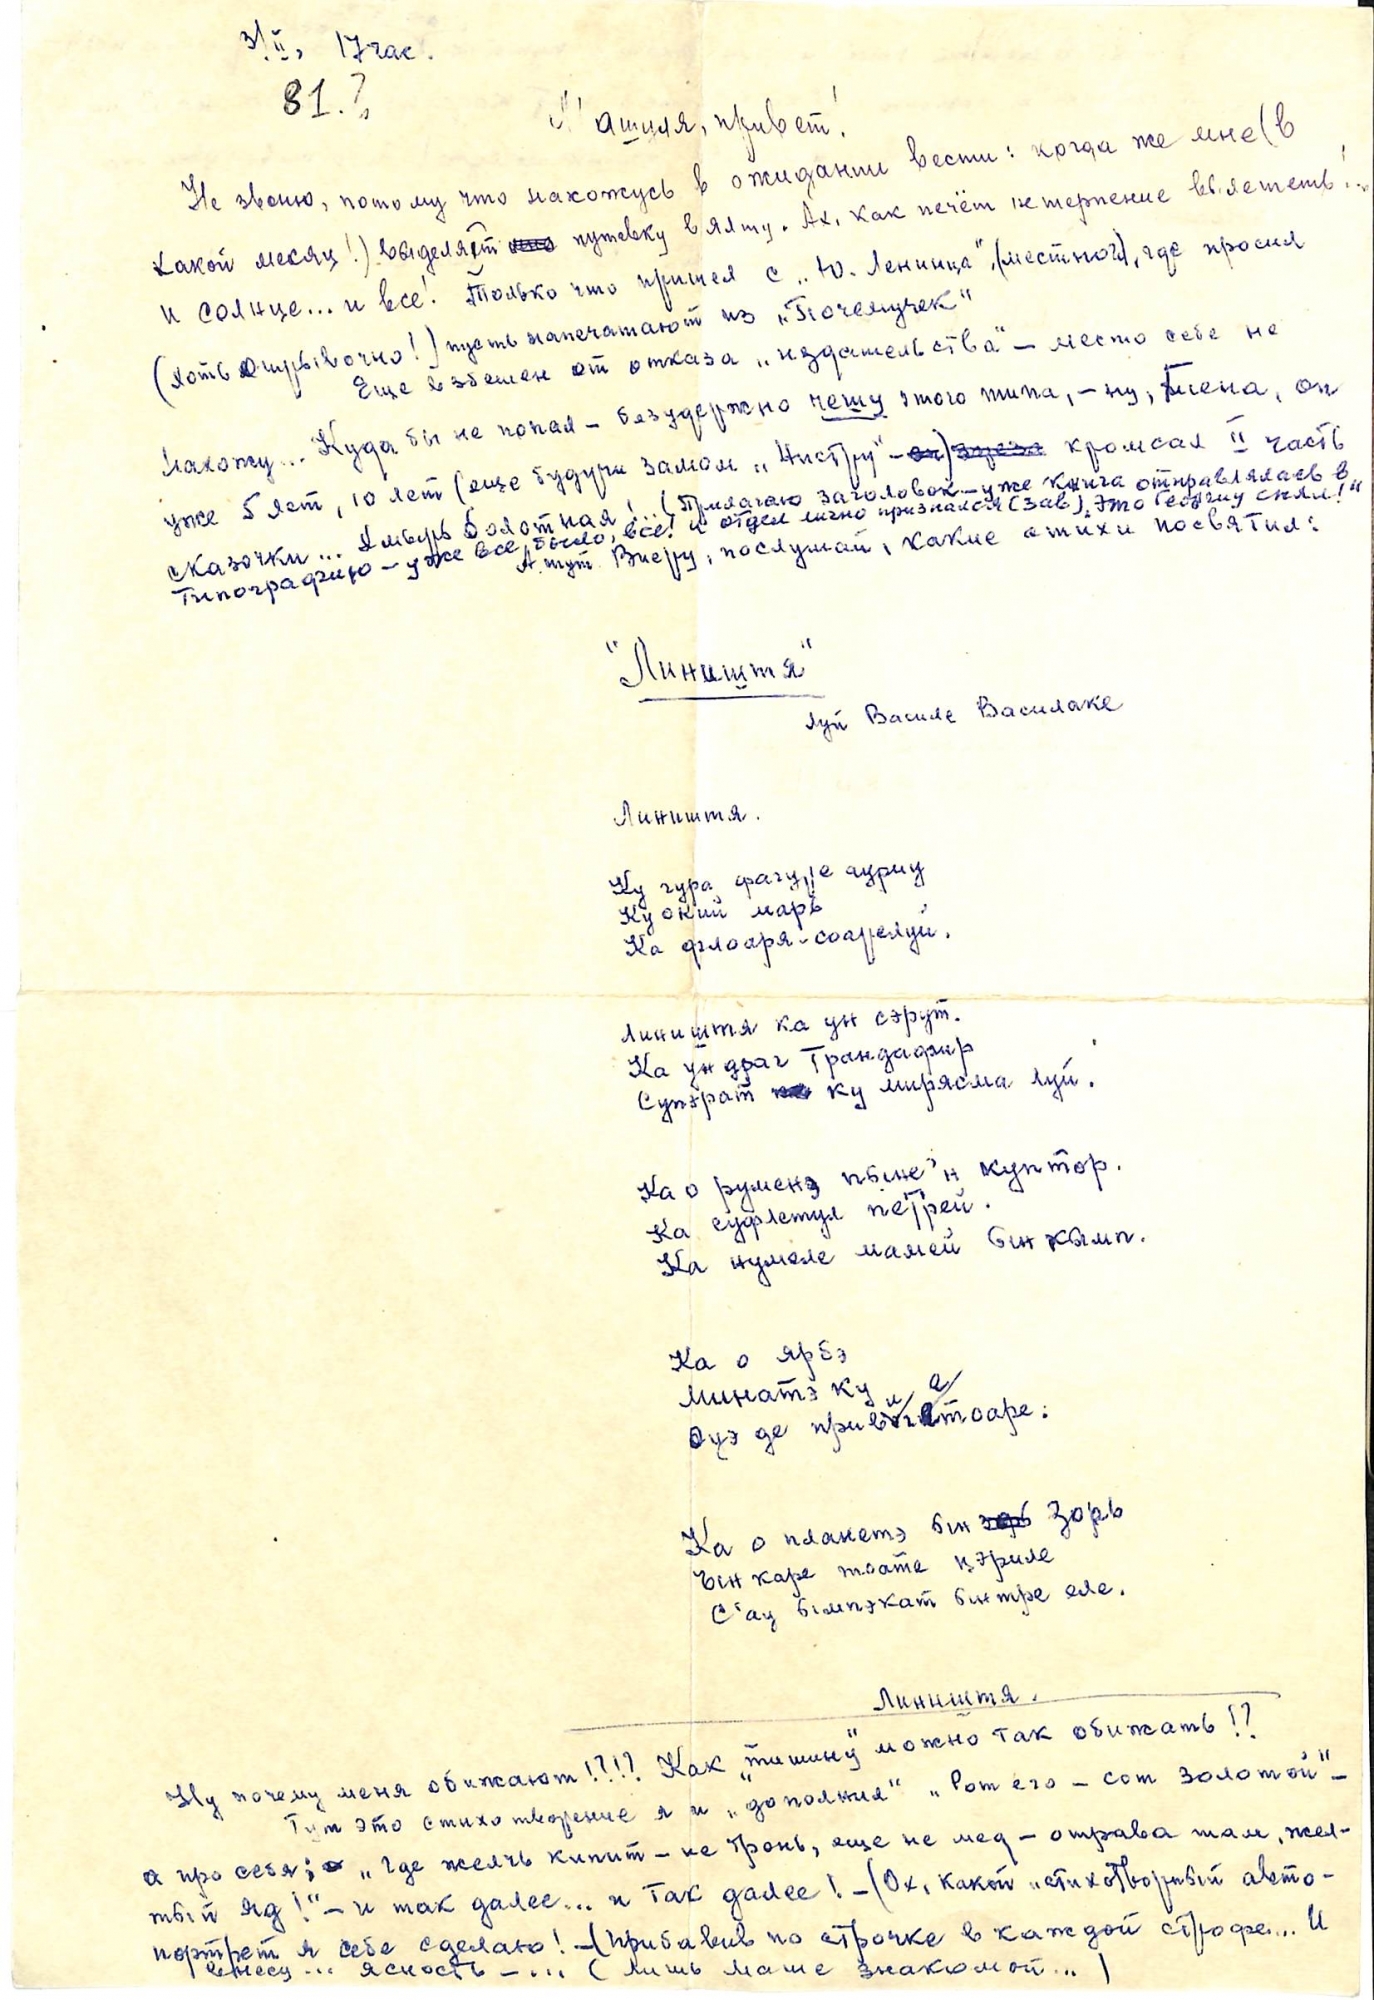 3/II, 17 час.
81.?
Машуля, привет!
Не звоню, потому что нахожусь в ожидании вести: когда же мне (в
какой месяц!) выделят путевку в Ялту. Ах, как печёт нетерпение вылететь!..
и солнце... и все! Только что пришел с „Ю. Ленинца", (местного), где просил
(хоть отрывочно!) пусть напечатают из „Почемучек"
Еще взбешен от отказа „издательства" – место себе не
нахожу... Куда бы не попал – безудержно чешу этого типа, – ну, Гмена, он
уже 5 лет, 10 лет (еще будучи замом „Нистру" – кромсал II часть
сказочки... Ямбурь болотная!... (Прилагаю заголовок – уже книга отправлялась в
типографию – уже все было, все! и отдел лично признался (зав), это Георгиу снял!"
А тут Виеру, послушай, какие стихи посвятил:
"Лиништя"
луй Василе Василаке
Лиништя.
Ку гура фагуре ауриу
Ку окий марь
Ка флоаря-соарелуй.
Лиништя ка ун сэрут.
Ка ун драг Трандафир
Супэрат ку миряcма луй.
Ка о руменэ пыне'н куптор.
Ка суфлетул петрей.
Ка нумеле мамей ын кымп.
Ка о ярбэ
минатэ ку
оуэ де привигетоаре:
и а
Ка о планетэ ын зорь
Ын каре тоате цэриле
С'ау ымпэкат ынтре еле.
Лиништя.
Ну почему меня обижают!?!? Как „тишину" можно так обижать!?
Тут это стихотворение я и „дополнил" „Рот его – сот золотой" –
а про себя: „где желчь кипит – не тронь, еще не мед – отрава там, жел-
тый яд!" – и так далее... и так далее! – (Ох, какой „стихотворный авто-
портрет я себе сделаю! – (прибавив по строчке в каждой строфе... И
внесу... ясность – ... (лишь Маше знакомой...)